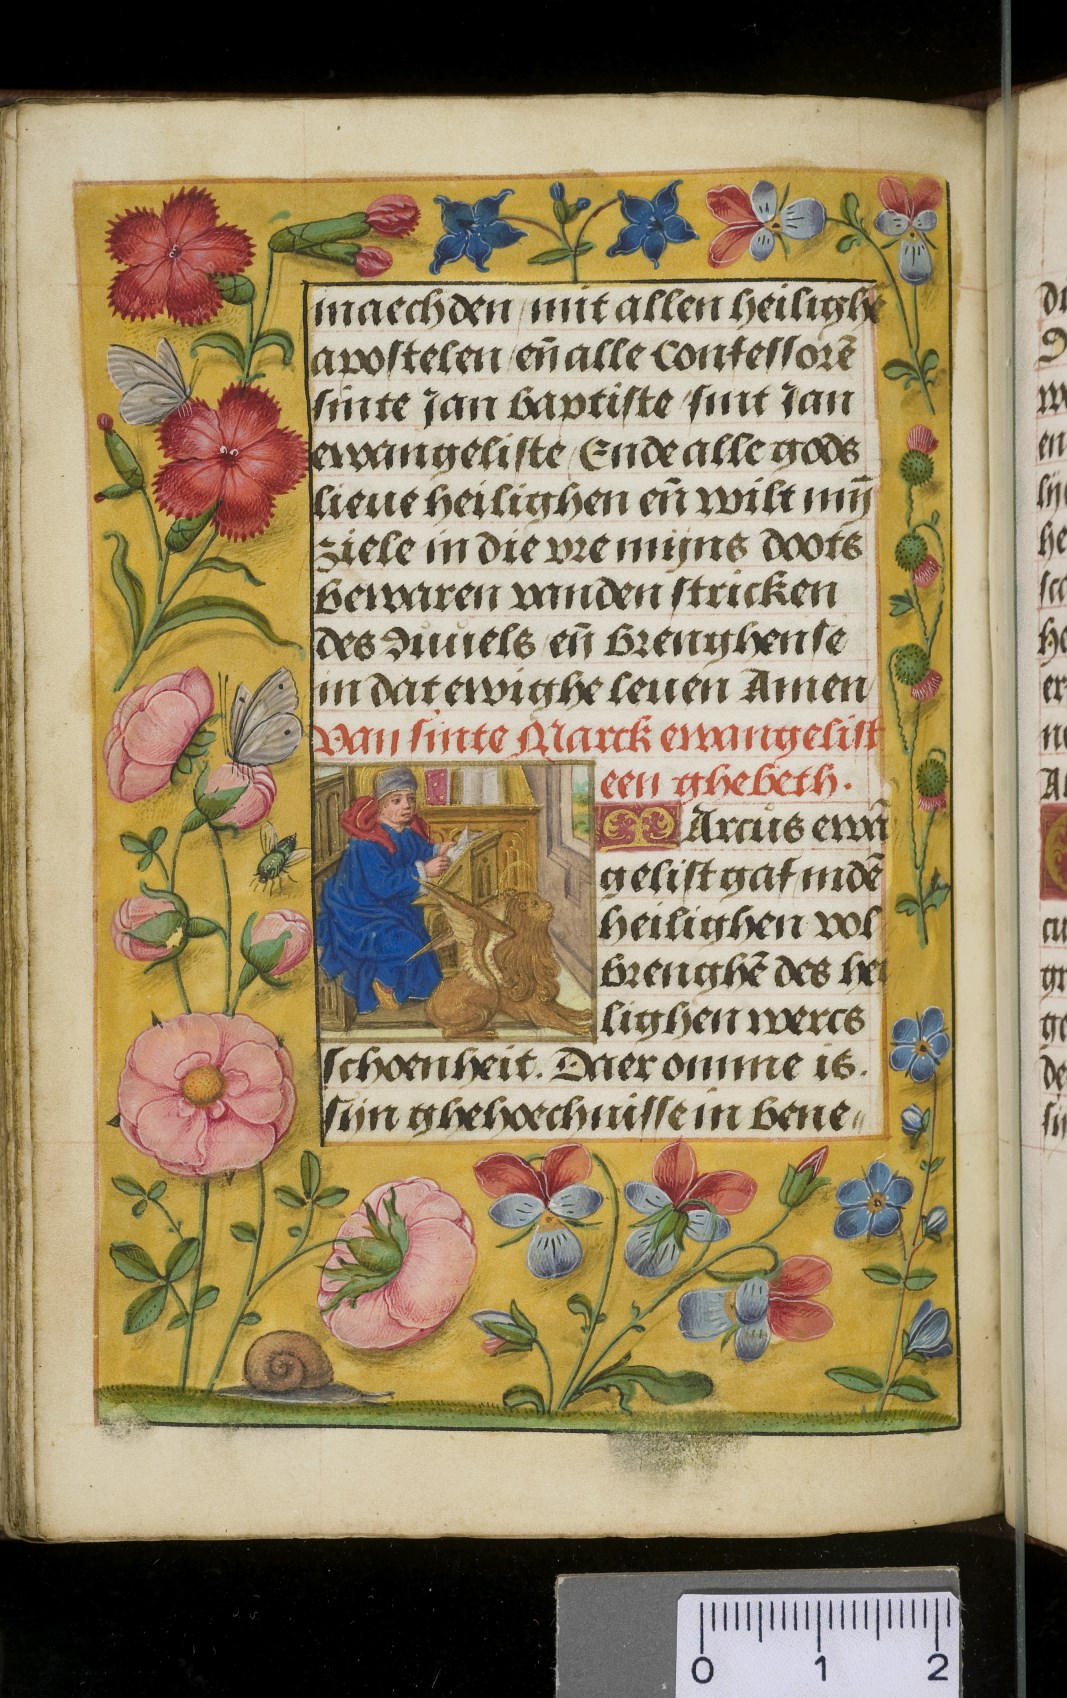 maechden / mit allen heilighē
apostelen / eñ alle Confessorē
sinte Jan baptiste / sint Jan
ewangeliste / Ende alle gods
lieue heilighen eñ wilt mijn̄
ziele in die vre mijns doots
bewaren vanden stricken
des duuels / eñ brenghense
in dat ewighe leuen Amen
Van sinte Marck ewangelist
een ghebeth.
Arcus ewā
gelist gaf indē
heilighen vol
brenghē des hei
lighen wercs
schoenheit. Daer omme is.
sijn ghehoechnisse in bene〃
0 1 2